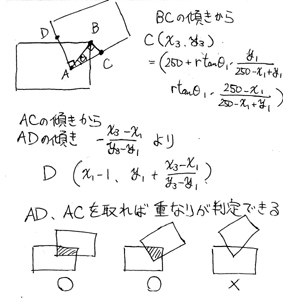 D
B
A
C
BCの傾きから
C(x₃, y₃)
=(250+rtanθ₁·y₁/(250-x₁+y₁)
rtanθ₁·(250-x₁)/(250-x₁+y₁))
ACの傾きから
ADの傾き -(x₃-x₁)/(y₃-y₁) より
D (x₁-1、y₁+(x₃-x₁)/(y₃-y₁))
AD、ACを取れば重なりが判定できる
○ ○ ×